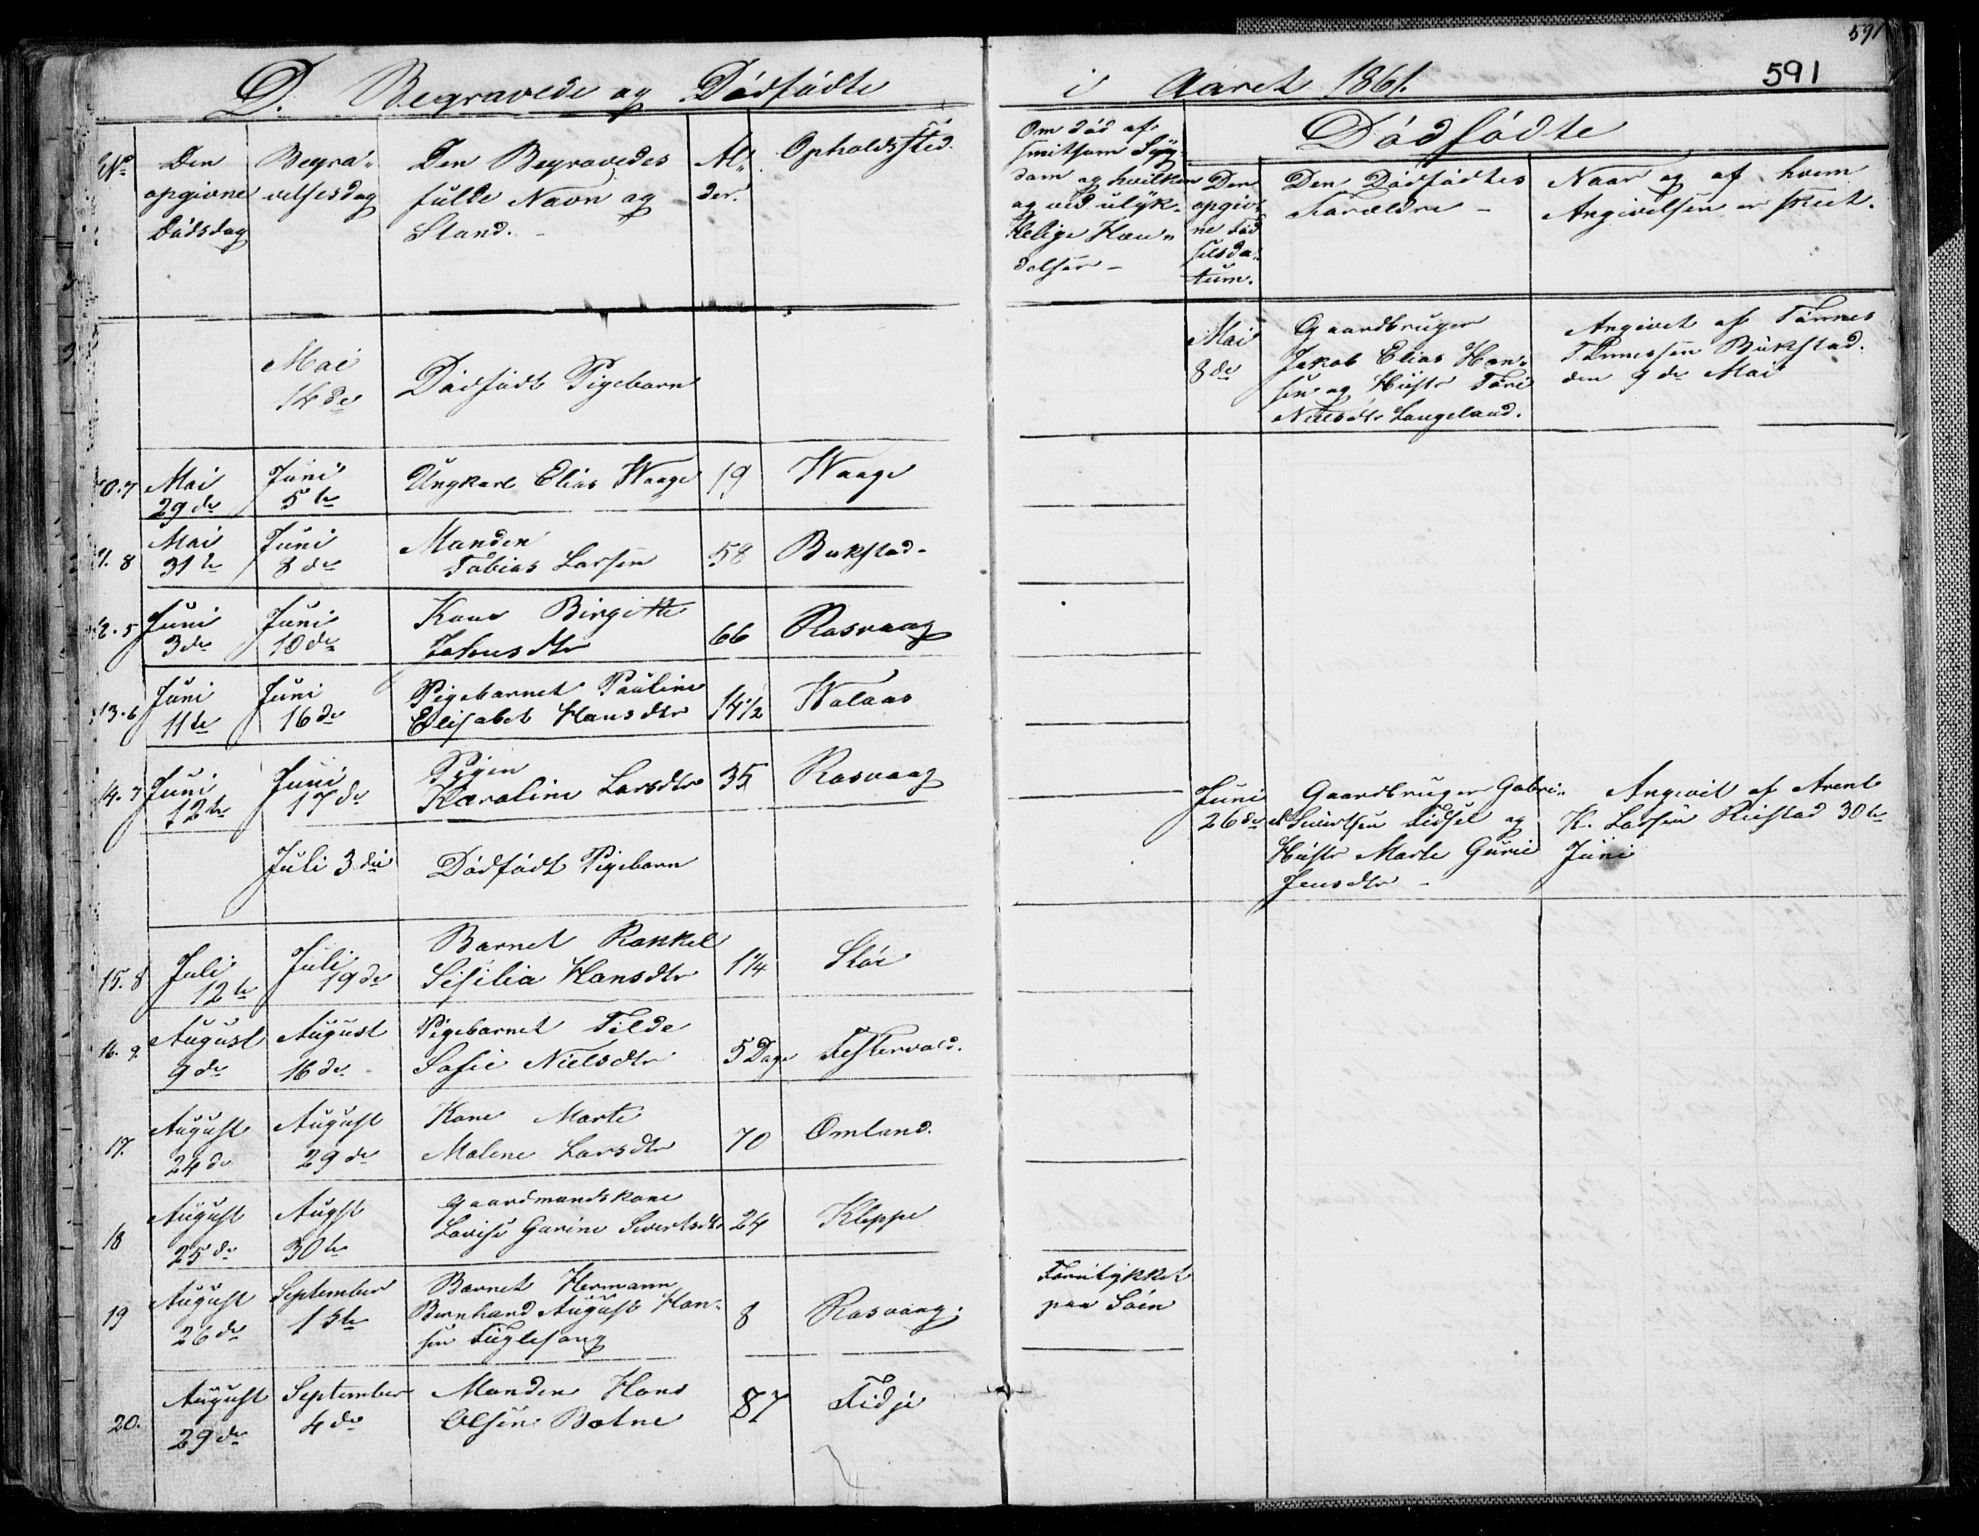 591
591
D. Begravede og Dödfödte i Aaret 1861.
No
Den opgivne Dödsdag
Begra-velsesdag
Den Begravedes fulde Navn og Stand.
Al-der.
Opholdssted.
Om död af smitsom Syg-dom og hvilken og ved ulyk-kelige Hæn-delser
Dödfödte
Den opgiv-ne Föd selsda-tum.
Den Dödfödtes Forældre
Naar og af hvem Angivelsen er skeet.
Mai 14de Dödfödt Pigebarn Mai 8de Gaardbruger Angivet af Tönnes
Jakob Elias Han- Tönnessen Bukstad
sen og Hustr Tori den 9de Mai
Nielsdtr Langeland.
10.7 Mai 29de Juni 5te Ungkarl Elias Waage 19 Waage
11. 8 Mai 31te Juni 8de Manden
Tobias Larsen 58 Bukstad
12. 5 Juni 3de Juni 10de Kone Birgitte
Jahnsdtr 66 Rasvaag
13. 6 Juni 11te Juni 16de Pigebarnet Pauline
Elisabet Hansdtr 14½ Walaas
14. 7 Juni 12te Juni 17de Pigen
Karoline Larsdtr 35 Rasvaag
Juli 3die Dödfödt Pigebarn Juni 26de Gaardbruger Gabri- Angivet af Arent
el Sivertsen Fidsel og K. Larsen 30te
Hustr Marte Gurie Juni
Jensdtr
15. 8 Juli 12te Juli 19de Barnet Rakkel
Sisilia Hansdtr 1¼ Stöe
16. 9 August 9de August 16de Pigebarnet Tilde
Sofie Nielsdtr 5 Dage Festervold.
17. August 24de August 29de Kone Marte
Malene Larsdtr 70 Omland.
18 August 25de Augst 30te Gaardmandskone
Lovise Garine Sivertsdtr 24 Kleppe
19 August 26de September 1ste Barnet Hermann
Bernhard August Han-
sen Fuglesang 8 Rasvaag. Forulykket
paa Söen
20. August 29de September 4de Manden Hans
Olsen Botne 87 Fidje